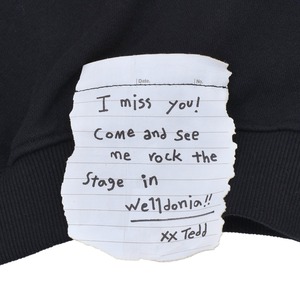 Date. No.
I miss you!
Come and see
me rock the
Stage in
Welldonia!!
xx Tedd